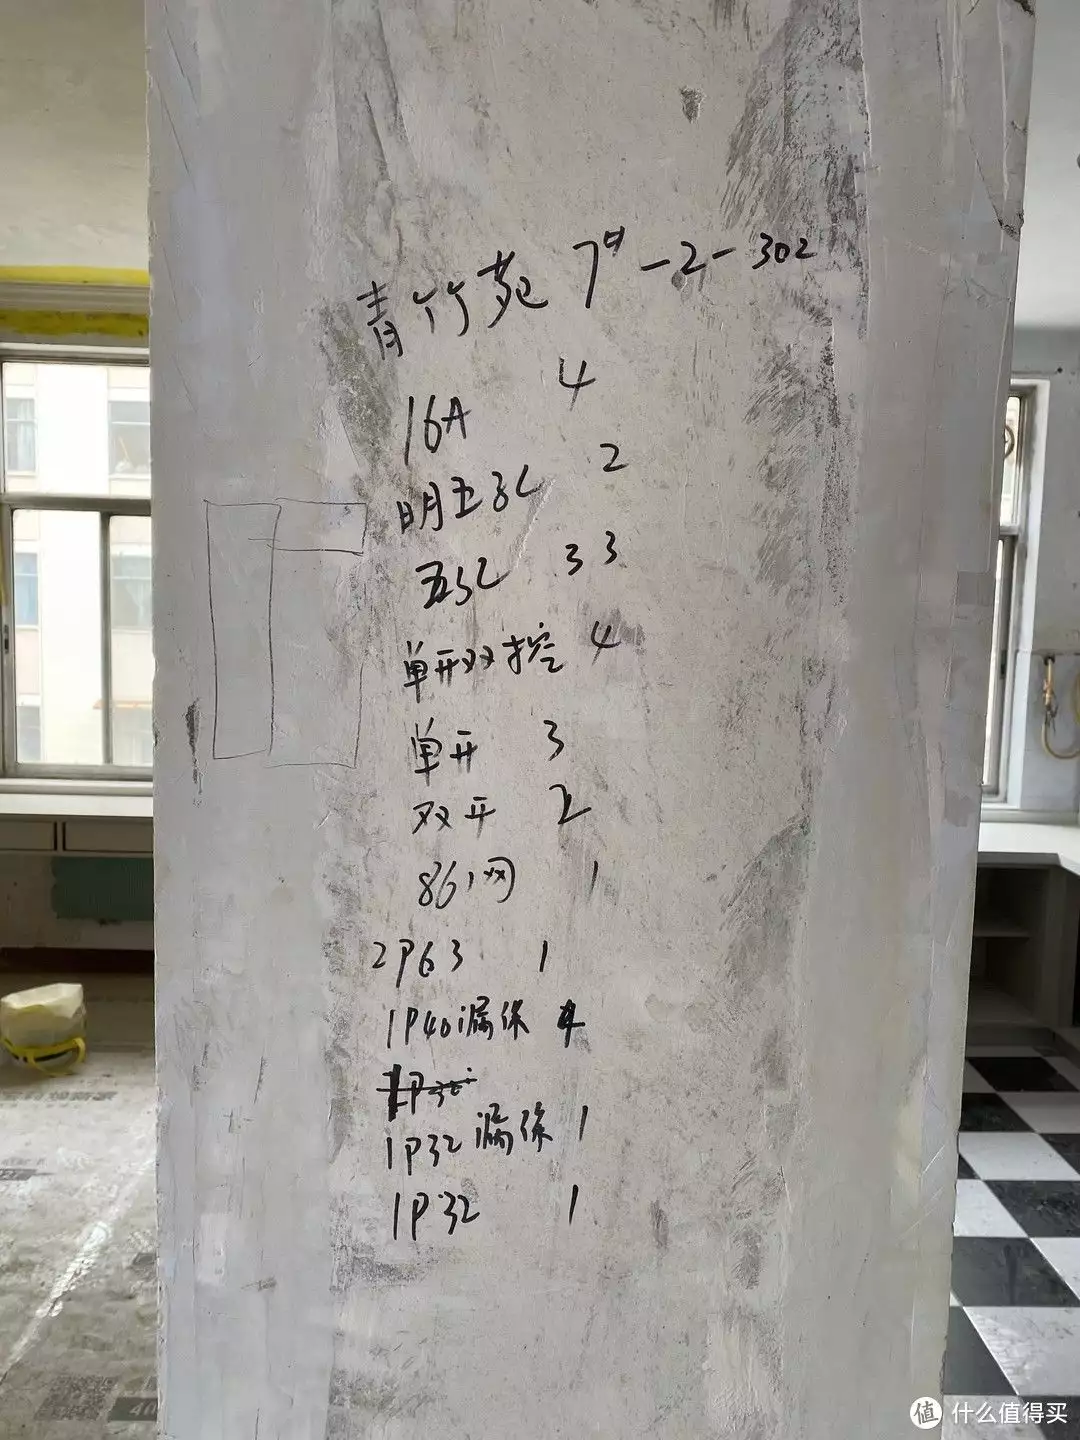 青竹苑 7#-2-302
16A 4
明五孔 2
五孔 33
单开双控 4
单开 3
双开 2
86网 1
2P63 1
1P40漏保 4
1P32漏保 1
1P32 1
值 什么值得买